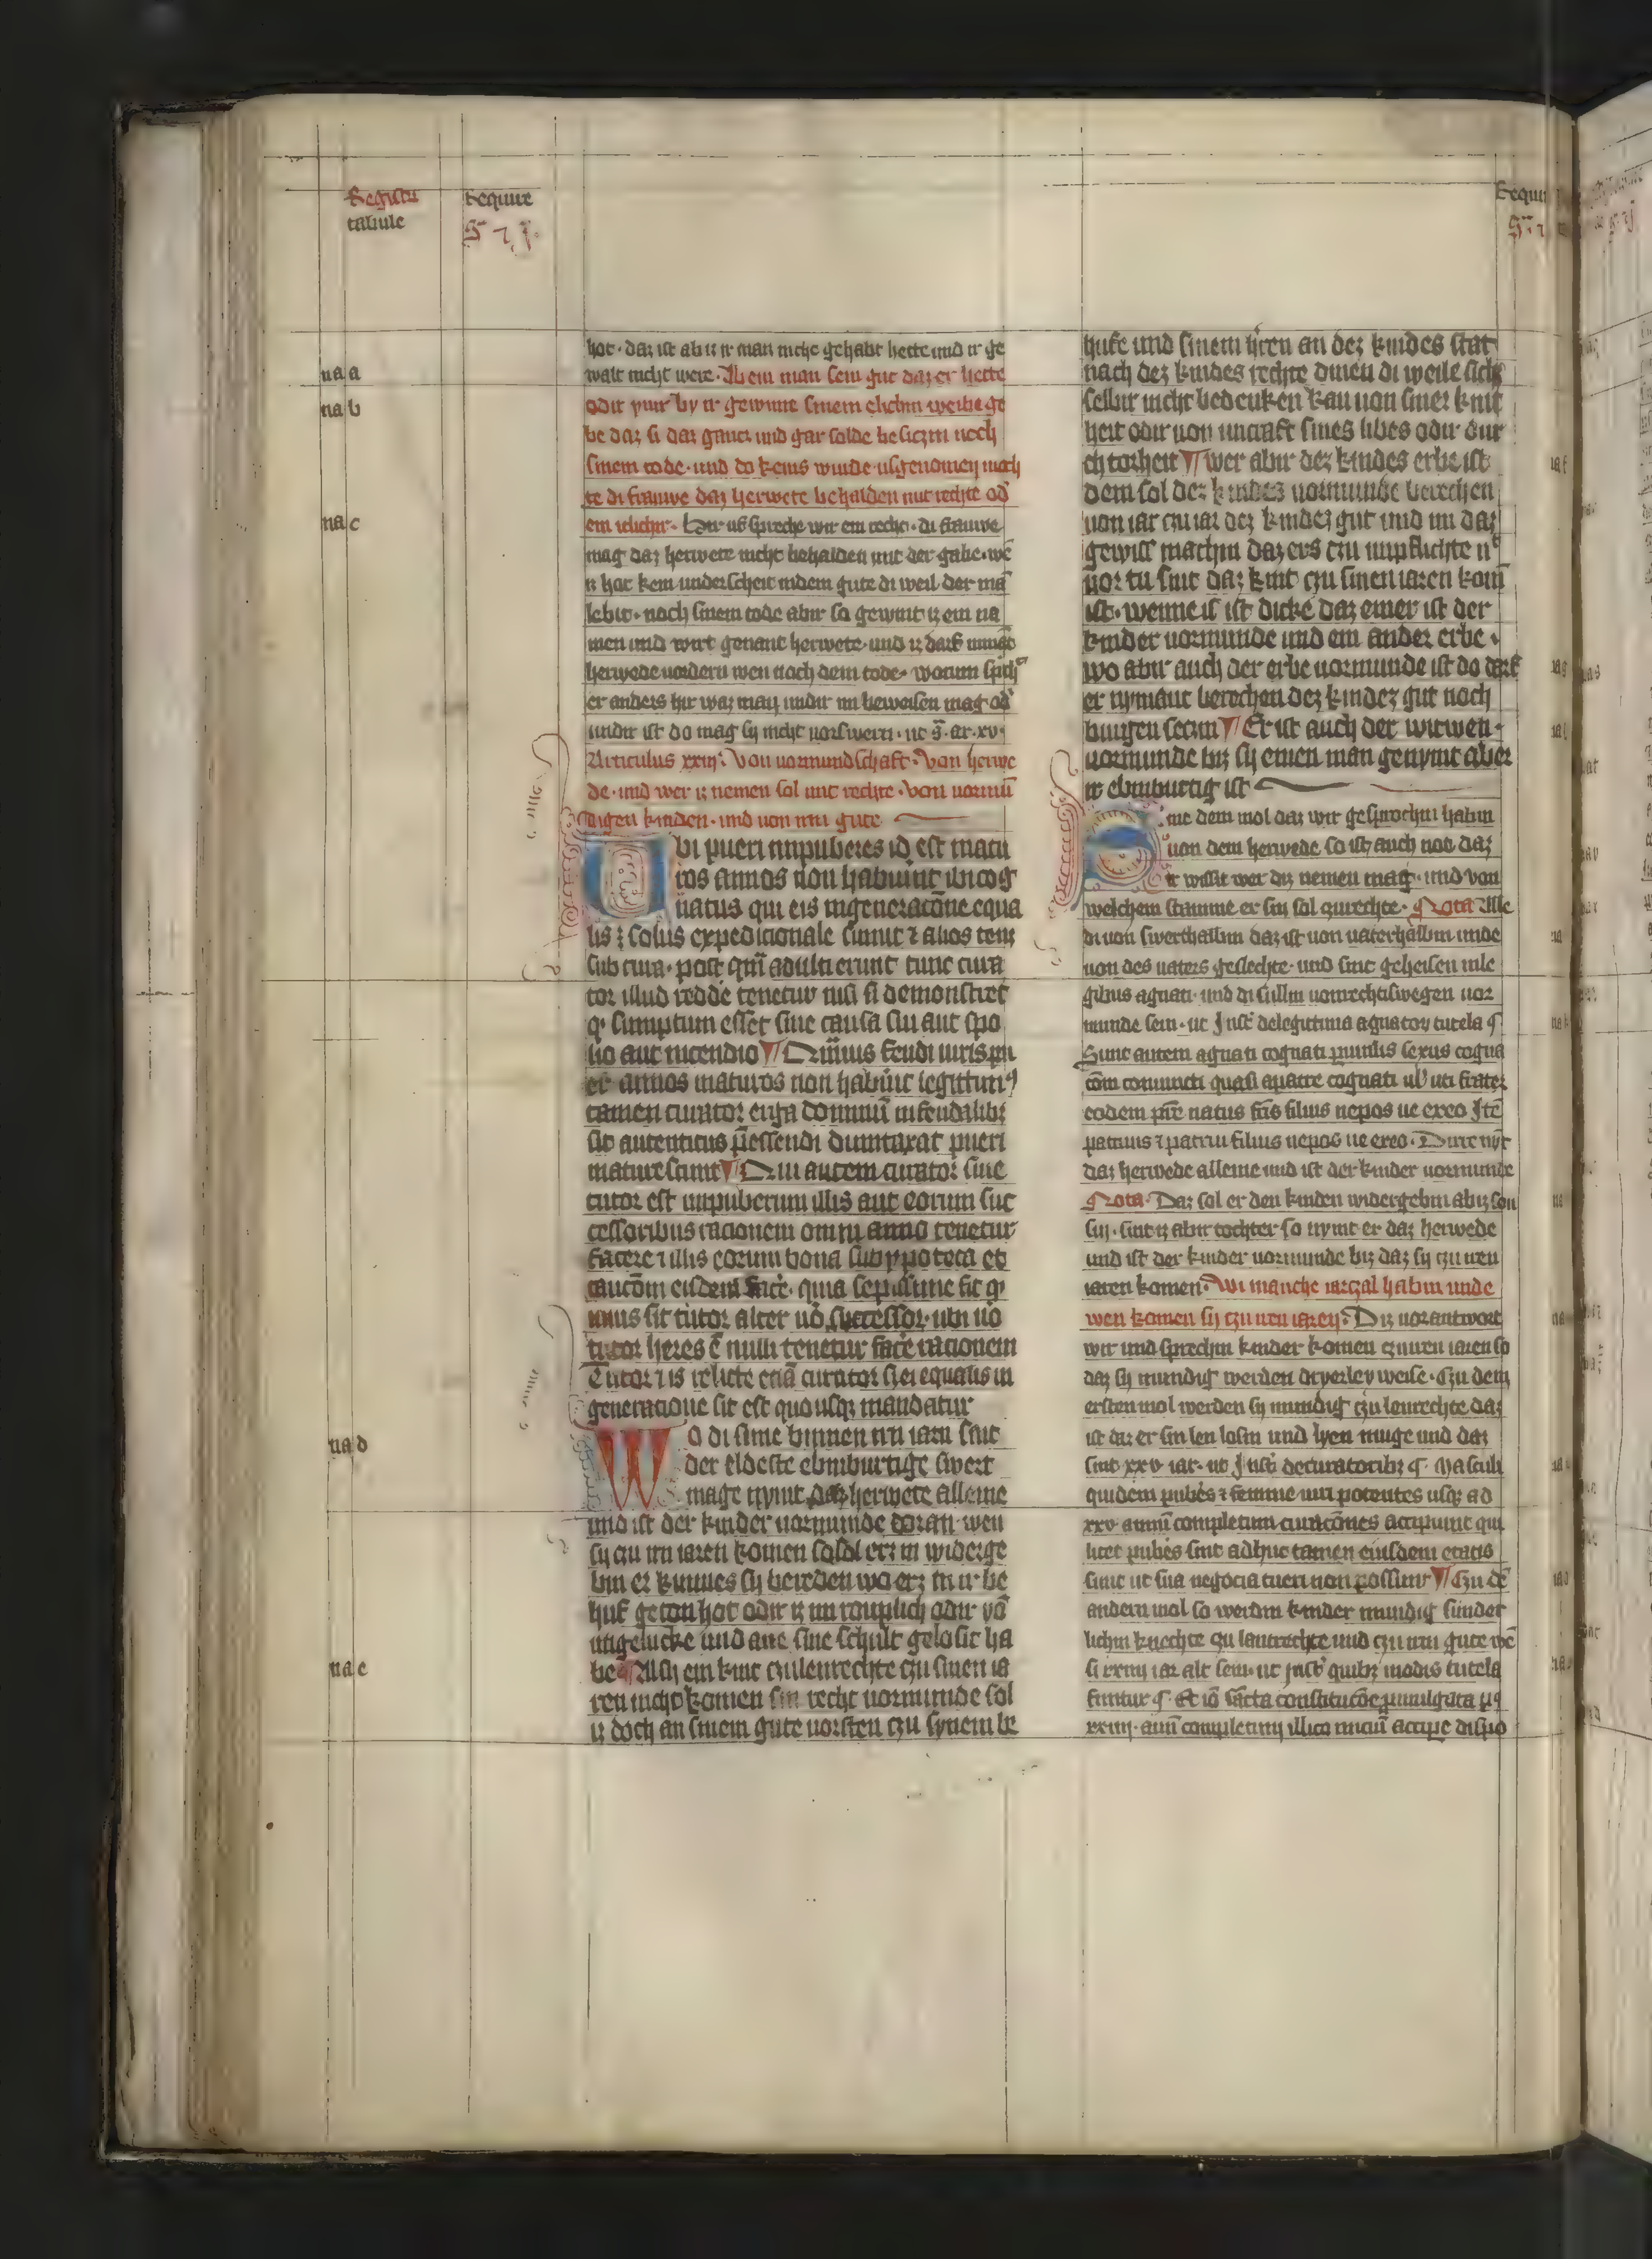 Registrum
tabule
Require
na a
na b
na c
na d
na e
hot · daz ist ab ir ir man nicht gehabt hette und ir ge
walt nicht were · Ab ein man sein gut daz er hette
odir vurbaz ir gewunne sinem elichin weibe ge
be daz si daz gancz und gar solde besiczin noch
sinem tode · und do keins wurde usgenomen moch
te di frauwe daz herwete behalden mit rechte od
em ichcht · Hir uf spreche wir ein recht · di frauwe
mag daz herwete nicht behalden mit der gabe · we
it hot kein underscheit indem gute di weil der ma
lebit · noch sinem tode abir so gewint iz ein na
men und wirt genant herwete · und iz darf nimat
herwede vordern wen noch dem tode · worum spch
er anders hir waz man undir im beweisen mag od
undir ist do mag sy nicht vorswern · ut s · ar · xv ·
Articulus xxiij · Von vormundschaft · Von herwe
de · und wer iz nemen sol mit rechte · Von vormu
digen kinden · und von irm gute
Ubi pueri inpuberes id est matu
ros annos non habuint ibi cog
natus qui eis in generacone equa
lis ⁊ solus expedicionale sumit ⁊ alios tenz
sub cura · post qm adulti erunt tunc cura
tor illud redde tenetur nisi si demonstret
q sumptum esset sine causa sui aut spo
lio aut incendio ¶ Dnius feudi iuris pu
er annos maturos non habuit legittim9
tamen curator erga dominu in feudalibz
sic autenticus pessendi dumtaxat pueri
mature sunt ¶ Qui autem curator siue
tutor est impuberum illis aut eorum suc
cessoribus racionem omni anno tenetur
facere ⁊ illis eorum bona sub ypoteca et
caucom eisdem face · quia sepissime fit q
unus sit tutor alter uo successor · ubi uo
tutor heres e nulli tenetur face racionem
Tutor ⁊ is relicte ecia curator si ei equalis in
generacione sit est quousqz maudatur
Wo di sune binnen irn iarn sint
der eldeste ebinburtige swert
mage nymt daz herwete alleine
und ist der kinder vormunde doran wen
sy czu irn iaren komen so sol erz in widerge
bin er kunnes sy bereden wo erz in ir be
huf geton hot odir iz im rouplich odir vo
ungelucke und ane sine schult gelosit ha
be ¶ Als ein kint czu lenrechte czu sinen ia
ren nicht komen sin recht vormunde sol
iz doch an sinem gute vorsten czu synem be
hufe und sinem hren an dez kindes stat
nach dez kindes rechte dinen di weile sichs
selbir nicht bedenken kan von siner kint
heit odir von uncraft sines libes odir dur
ch torheit ¶ wer abir dez kindes erbe ist
dem sol dez kindes vormunde berechen
von iar czu iar dez kindez gut und im daz
gewiss machin daz ers czu unpflichte n
vor tu sint daz kint czu sinen iaren kom
ist · wenne is ist dicke daz einer ist der
kinder vormunde und ein ander erbe ·
wo abir auch der erbe vormunde ist do darf
er nymant berechen dez kindez gut noch
burgen seczin ¶ Er ist auch der witwen
vormunde biz sy einen man genymt aber
ir ebinburtig ist
Sint dem mol daz wir gesprochin habin
von dem herwede so ist auch not daz
ir wissit wer diz nemen mag · und von
welchem stamme er sin sol czurechte · Nota Alle
di von swerthalbin daz ist von vaterhalbin unde
von des vaters geslechte · und sint geheisen in le
gibus agnati · und di sullin von rechtiswegen vor
munde sein · ut Inst de legittima agnator tutela ¶
Sunt autem agnati cognati p uirilis sexus cogna
com coniuncti quasi apatre cognati ul ut frater
eodem pre natus fris filius nepos ue ex eo Ite
patruus ⁊ patrui filius nepos ue ex eo · Dirre nymt
daz herwede alleine und ist der kinder vormunde
Nota Daz sol er den kinden widergebin ab iz son
sin · sint iz abir tochter so nymt er daz herwede
und ist der kinder vormunde biz daz sy czu iren
iaren komen · Wi manche iarczal habin unde
wen komen sy czu iren iaren · Diz vorantworte
wir und sprechin kinder komen czu iren iaren so
daz sy mundig werden dryerley weise · Czu dem
ersten mol werden sy mundig czu lenrechte daz
ist daz er sin len losin und lyen muge und daz
sint xxv iar · ut Inst de curatoribz ¶ Masculi
quidem pubes ⁊ femine uiri potentes usqz ad
xxv annu completum curacones accipiunt qui
licet pubes sint adhuc tamen eiusdem etatis
sunt ut sua negocia tueri non possint ¶ Czu de
andern mol so werdin kinder mundig sunder
lichin knechte czu lantrechte und czu irm gute we
si xxiiij iar alt sein · ut inst quibz modis tutela
finitur ¶ Et io sacta constitucoe pmulgata p9
xxiiij · annu completum illico iniciu accipe dispo